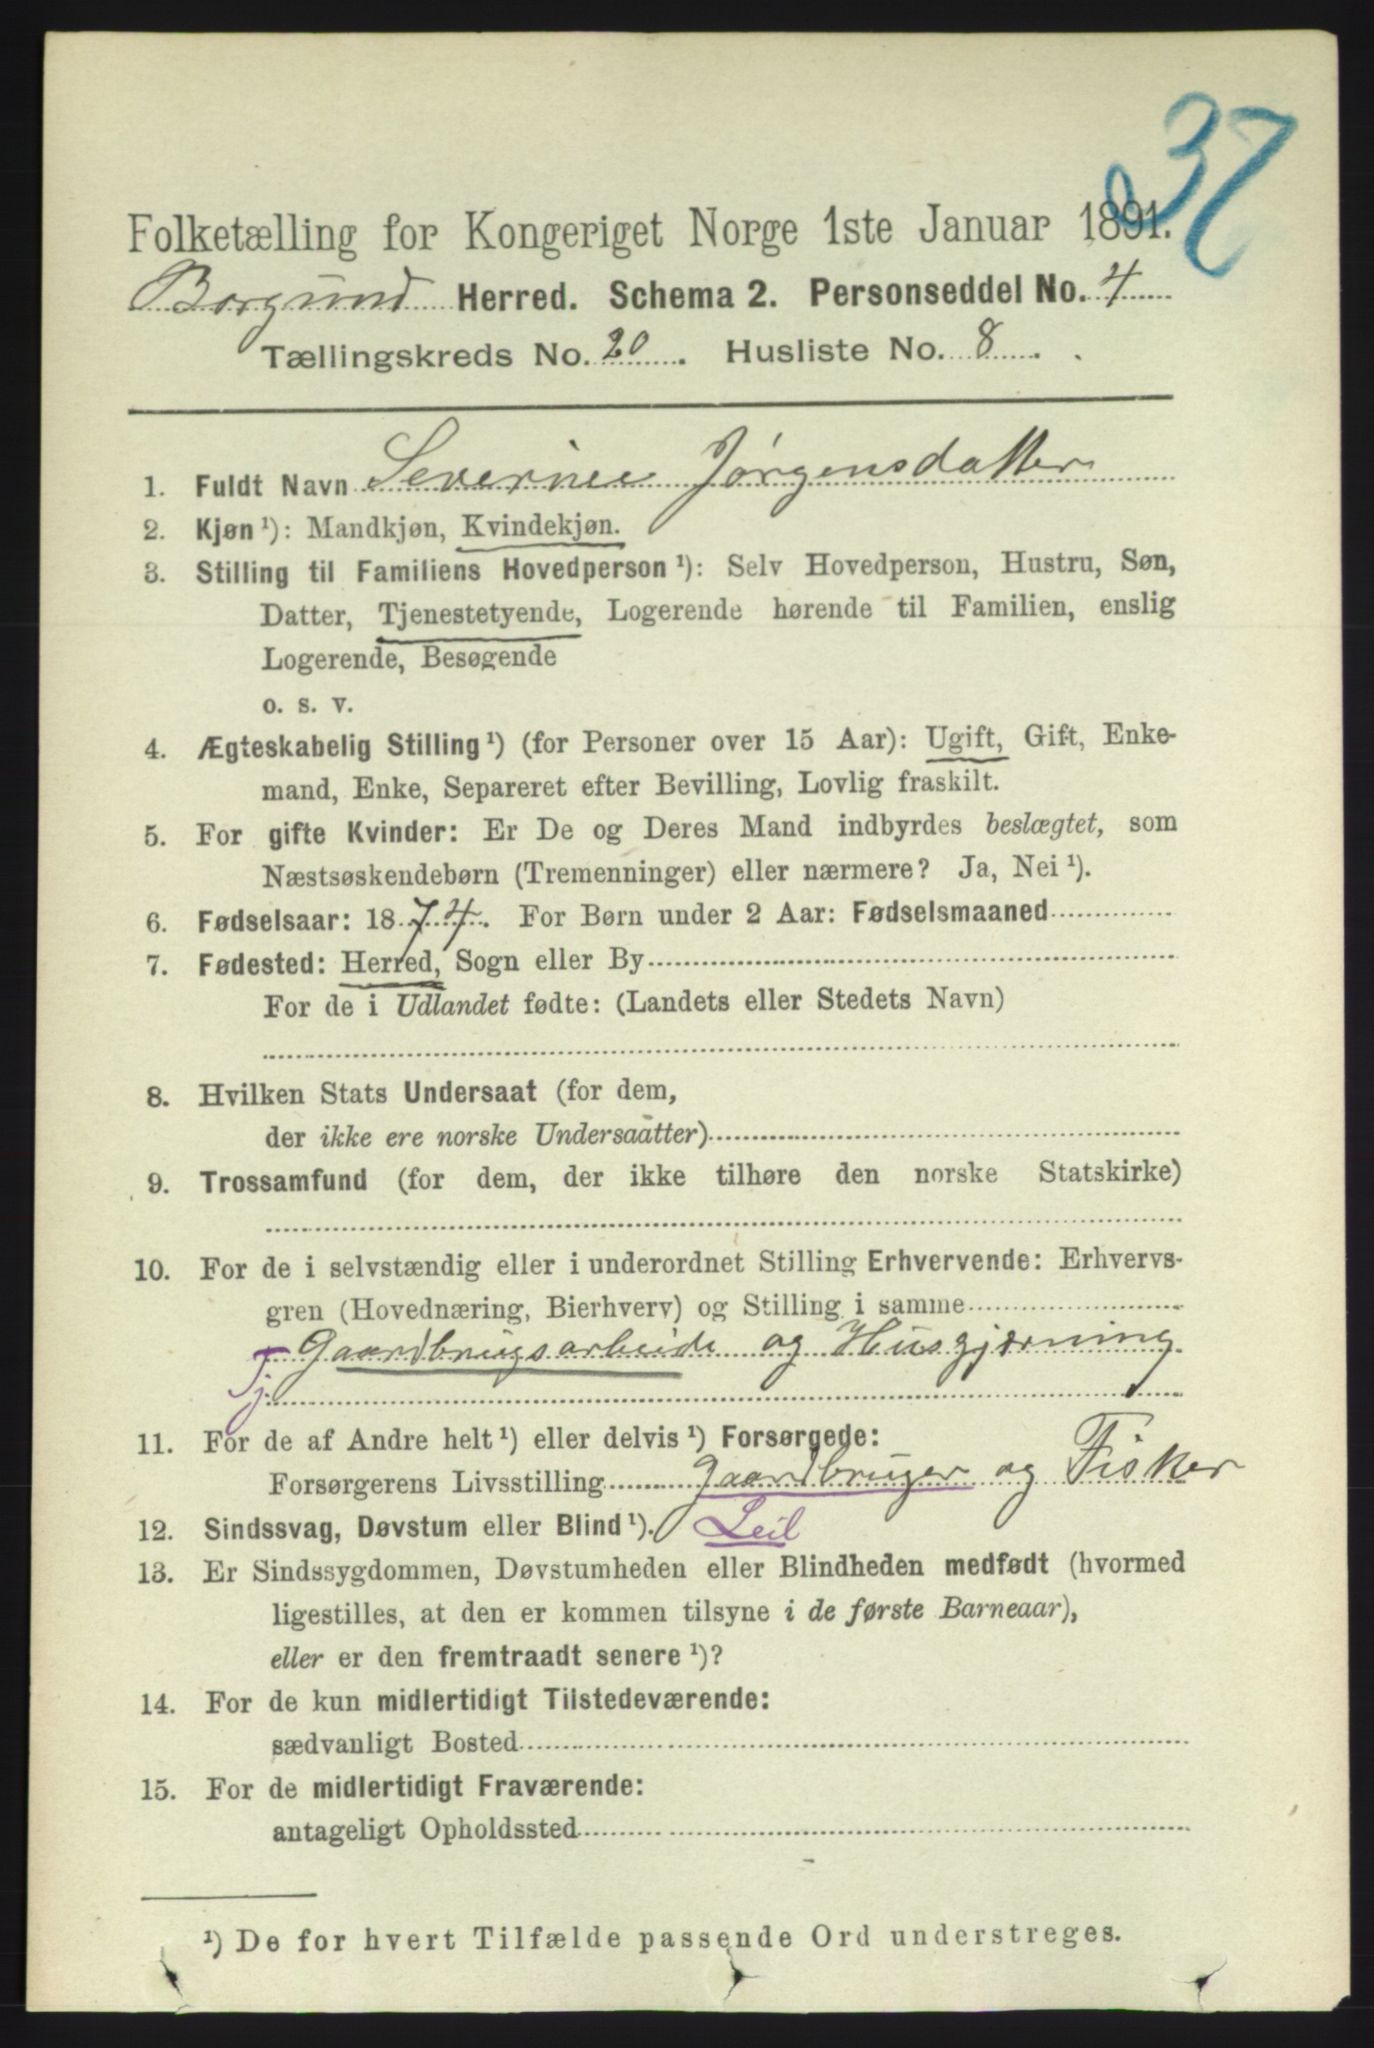 37
Folketælling for Kongeriget Norge 1ste Januar 1891.
Borgund Herred. Schema 2. Personseddel No. 4
Tællingskreds No. 20. Husliste No. 8.
1. Fuldt Navn Severine Jørgensdatter
2. Kjøn ¹): Mandkjøn, Kvindekjøn.
3. Stilling til Familiens Hovedperson ¹): Selv Hovedperson, Hustru, Søn,
Datter, Tjenestetyende, Logerende hørende til Familien, enslig
Logerende, Besøgende
o. s. v.
4. Ægteskabelig Stilling ¹) (for Personer over 15 Aar): Ugift, Gift, Enke-
mand, Enke, Separeret efter Bevilling, Lovlig fraskilt.
5. For gifte Kvinder: Er De og Deres Mand indbyrdes beslægtet, som
Næstsøskendebørn (Tremenninger) eller nærmere? Ja, Nei ¹).
6. Fødselsaar: 1874. For Børn under 2 Aar: Fødselsmaaned
7. Fødested: Herred, Sogn eller By
For de i Udlandet fødte: (Landets eller Stedets Navn)
8. Hvilken Stats Undersaat (for dem,
der ikke ere norske Undersaatter)
9. Trossamfund (for dem, der ikke tilhøre den norske Statskirke)
10. For de i selvstændig eller i underordnet Stilling Erhvervende: Erhvervs-
gren (Hovednæring, Bierhverv) og Stilling i samme
Tj. Gaardbrugsarbeide og Husgjærning
11. For de af Andre helt ¹) eller delvis ¹) Forsørgede:
Forsørgerens Livsstilling Gaardbruger og Fisker
12. Sindssvag, Døvstum eller Blind ¹). Leil
13. Er Sindssygdommen, Døvstumheden eller Blindheden medfødt (hvormed
ligestilles, at den er kommen tilsyne i de første Barneaar),
eller er den fremtraadt senere ¹)?
14. For de kun midlertidigt Tilstedeværende:
sædvanligt Bosted
15. For de midlertidigt Fraværende:
antageligt Opholdssted
¹) De for hvert Tilfælde passende Ord understreges.